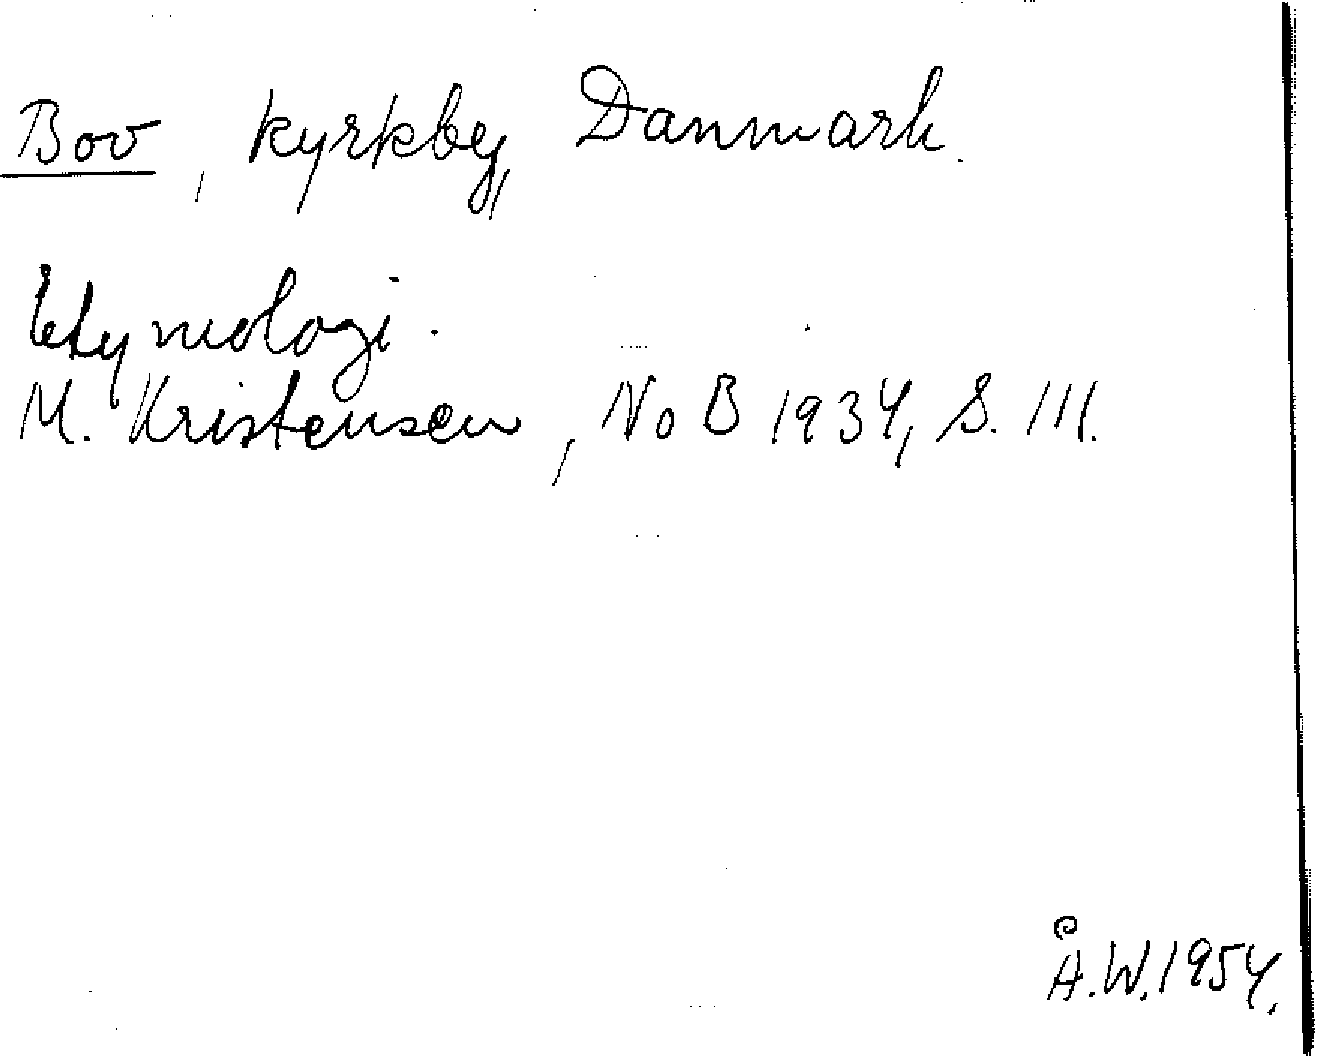 Bov, kyrkby, Danmark.
Etymologi.
M. Kristensen, NoB 1934, S. 111.
Å.W. 1954.